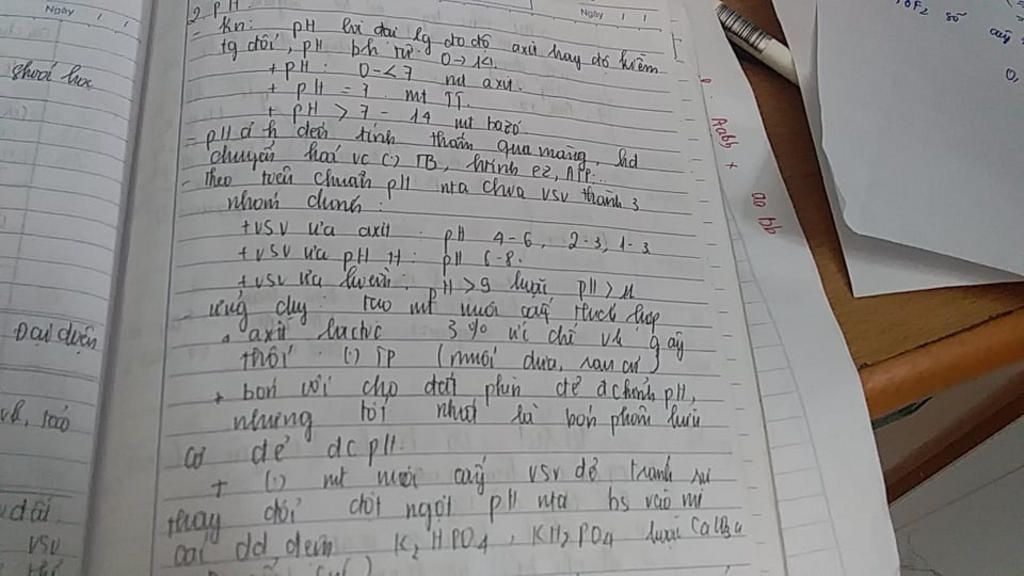 Ngày / /
Ngày / /
2. pH
- kn: pH là đại lg đo độ axit hay độ kiềm
tg đối, pH bh từ 0→14.
+ pH: 0-<7 mt axit.
+ pH = 7 mt TT.
+ pH > 7 - 14 mt bazơ
- pH a h đến tính thấm qua màng, hđ
chuyển hoá vc (.) TB, htính ez, ATP...
- Theo tiêu chuẩn pH nta chia vsv thành 3
nhóm chung:
+ VSV ưa axit : pH 4-6, 2-3, 1-3
+ VSV ưa pH tt: pH 6-8.
+ VSV ưa kiềm: pH > 9 hoặc pH > 11
- ứng dụg: tạo mt nuôi cấy thích hợp
axit lactic 3% ức chế vk gây
thối (.) TP (muối dưa, rau củ)
+ bón vôi cho đất phèn để đchỉnh pH,
nhưng tốt nhất là bón phân hữu
cơ để đc pH.
+ (.) mt nuôi cấy vsv để tránh sự
thay đổi đột ngột pH nta bs vào mt
các dd đệm K2HPO4, KH2PO4 hoặc
Đại diện
vk, tảo
VSV
Aabb +
aa bb
số